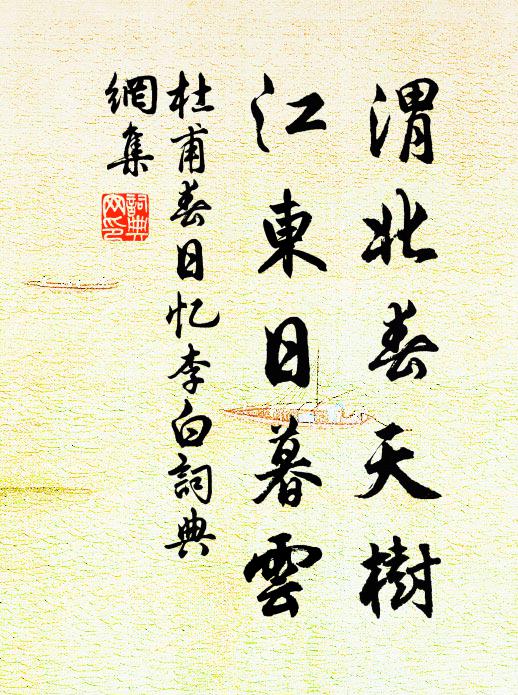 渭北春天樹
江東日暮雲
杜甫春日忆李白詞典
網集
詞典
网印